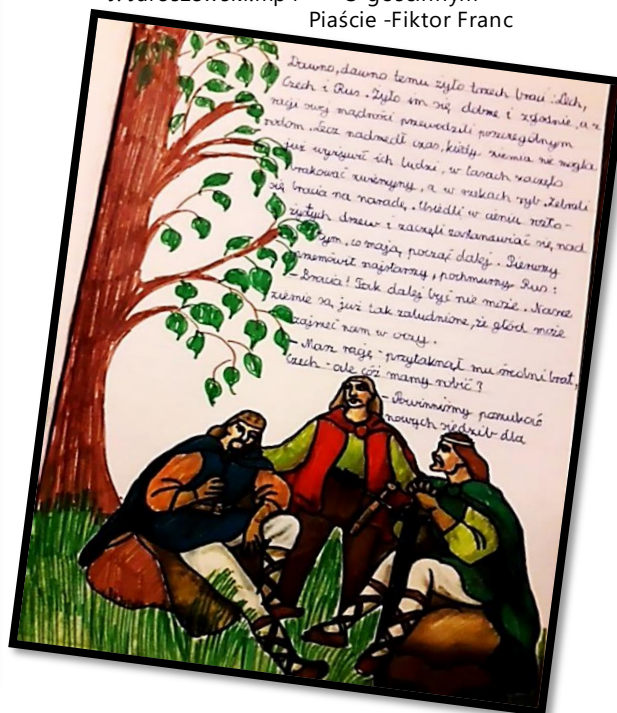 Piaście -Fiktor Franc
Dawno, dawno temu żyło trzech braci: Lech,
Czech i Rus. Żyło im się dobrze i zgodnie, a z
racji swej mądrości przewodzili poszczególnym
rodom. Lecz nadszedł czas, kiedy ziemia nie mogła
już wyżywić ich ludzi, w lasach zaczęło
brakować zwierzyny, a w rzekach ryb. Zebrali
się bracia na naradę. Usiedli w cieniu rozło-
żystych drzew i zaczęli zastanawiać się nad
tym, co mają począć dalej. Pierwszy
przemówił najstarszy, pochmurny Rus:
- Bracia! Tak dalej być nie może. Nasze
ziemie są już tak zaludnione, że głód może
zajrzeć nam w oczy.
- Masz rację - przytaknął mu średni brat,
Czech - ale cóż mamy robić?
- Powinniśmy poszukać
nowych siedzib dla